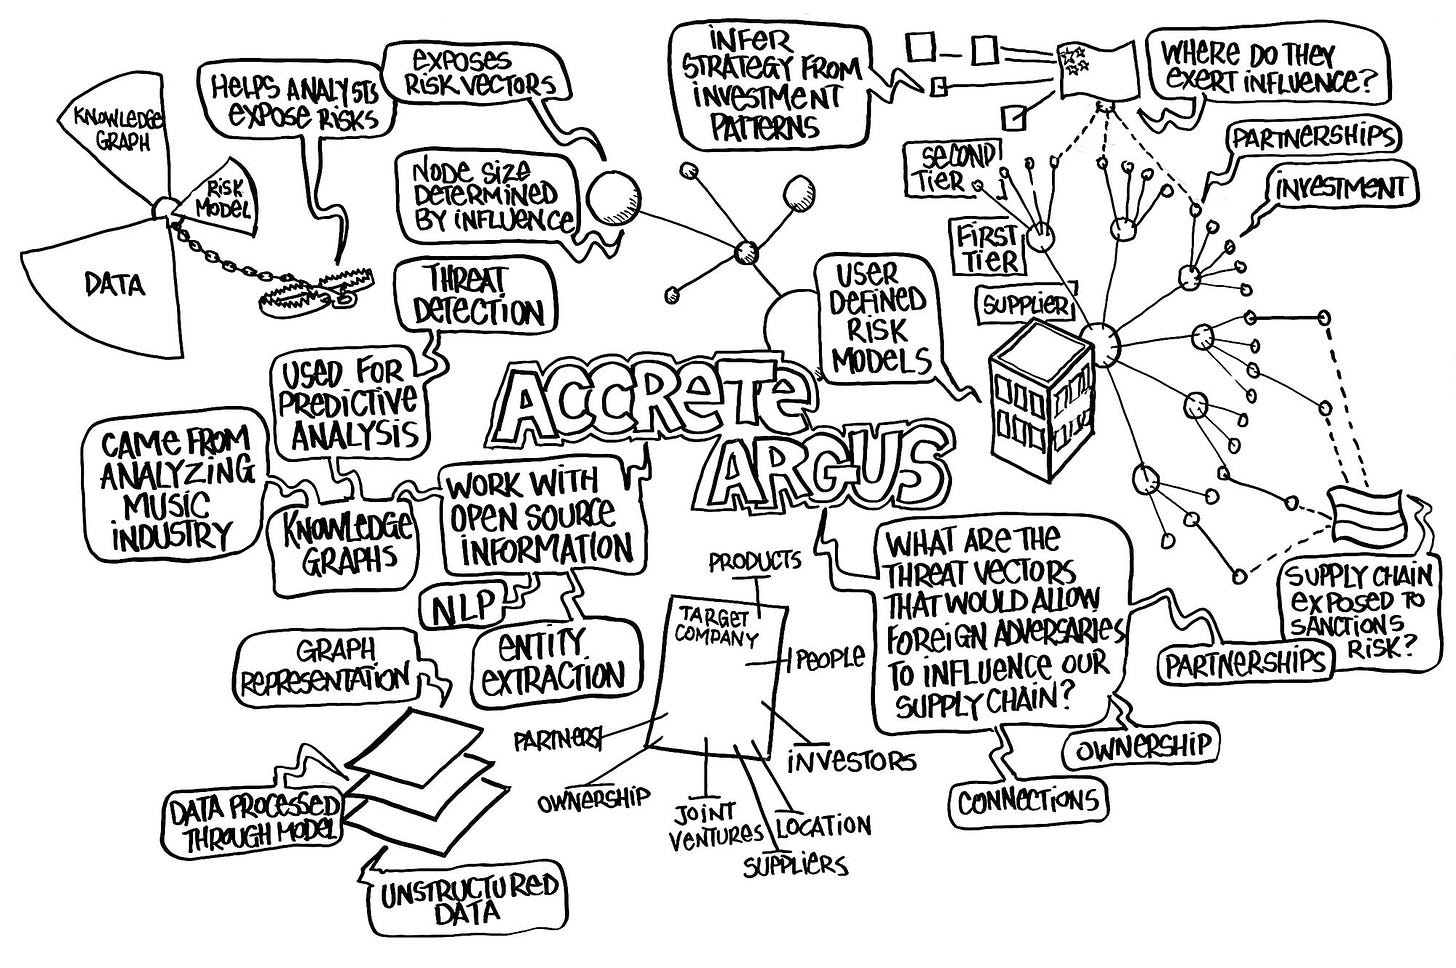 KNOWLEDGE
GRAPH
RISK
MODEL
DATA
HELPS ANALYSTS
EXPOSE RISKS
EXPOSES
RISK VECTORS
NODE SIZE
DETERMINED
BY INFLUENCE
THREAT
DETECTION
USED FOR
PREDICTIVE
ANALYSIS
CAME FROM
ANALYZING
MUSIC
INDUSTRY
KNOWLEDGE
GRAPHS
WORK WITH
OPEN SOURCE
INFORMATION
NLP
ENTITY
EXTRACTION
GRAPH
REPRESENTATION
DATA PROCESSED
THROUGH MODEL
UNSTRUCTURED
DATA
ACCRETE
ARGUS
INFER
STRATEGY FROM
INVESTMENT
PATTERNS
WHERE DO THEY
EXERT INFLUENCE?
PARTNERSHIPS
INVESTMENT
SECOND
TIER
FIRST
TIER
SUPPLIER
USER
DEFINED
RISK
MODELS
PRODUCTS
TARGET
COMPANY
PEOPLE
PARTNERS
OWNERSHIP
JOINT
VENTURES
SUPPLIERS
LOCATION
INVESTORS
WHAT ARE THE
THREAT VECTORS
THAT WOULD ALLOW
FOREIGN ADVERSARIES
TO INFLUENCE OUR
SUPPLY CHAIN?
PARTNERSHIPS
OWNERSHIP
CONNECTIONS
SUPPLY CHAIN
EXPOSED TO
SANCTIONS
RISK?